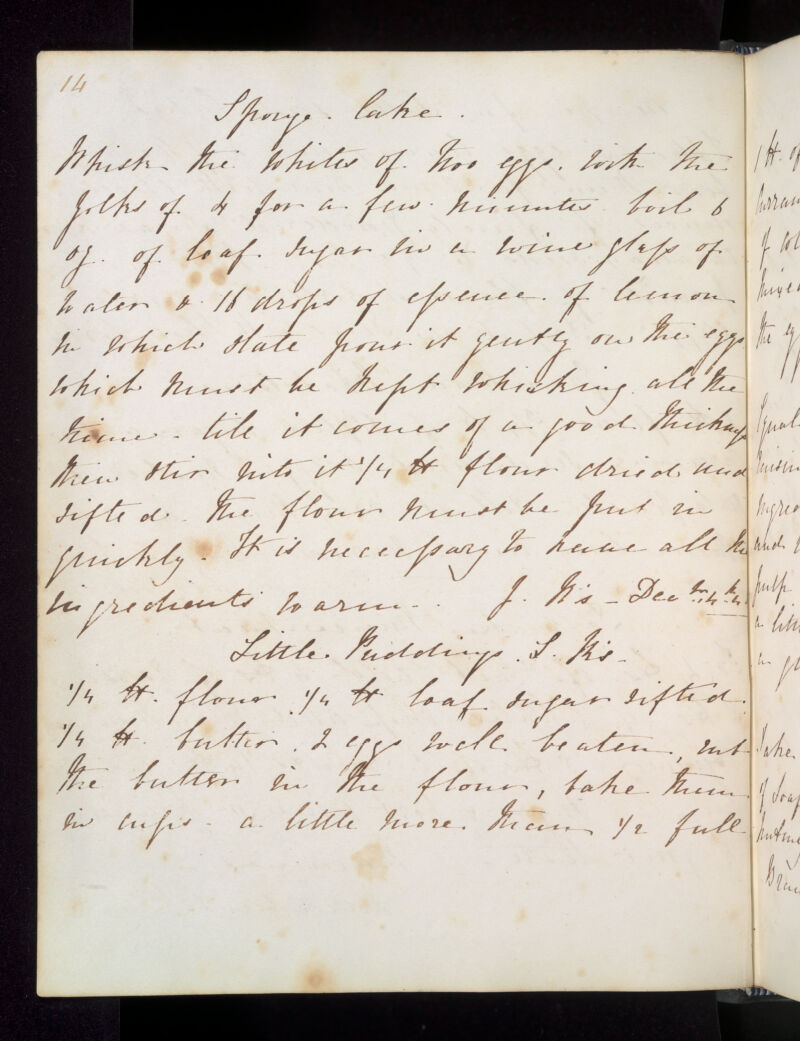 14
Sponge Cake.
Whisk the whites of two eggs. with the
yolks of 4 for a few minutes boil 6
oz. of loaf sugar in a wine glass of
water & 16 drops of essence of lemon
in which state pour it gently on the eggs
which must be kept whisking all the
time - till it comes of a good thickness
then stir into it 1/4 lb flour dried and
sifted. The flour must be put in
quickly. It is necessary to have all the
ingredients warm. - J. K's - Decbr
Little Puddings. S. K's -
1/4 lb. flour 1/4 lb loaf sugar sifted
1/4 lb. butter. 2 eggs well beaten, rub
the butter in the flour, bake them
in cups - a little more than 1/2 full
1 lb of
Curran
the
Equal
and
pulp
a little
a
Take
of